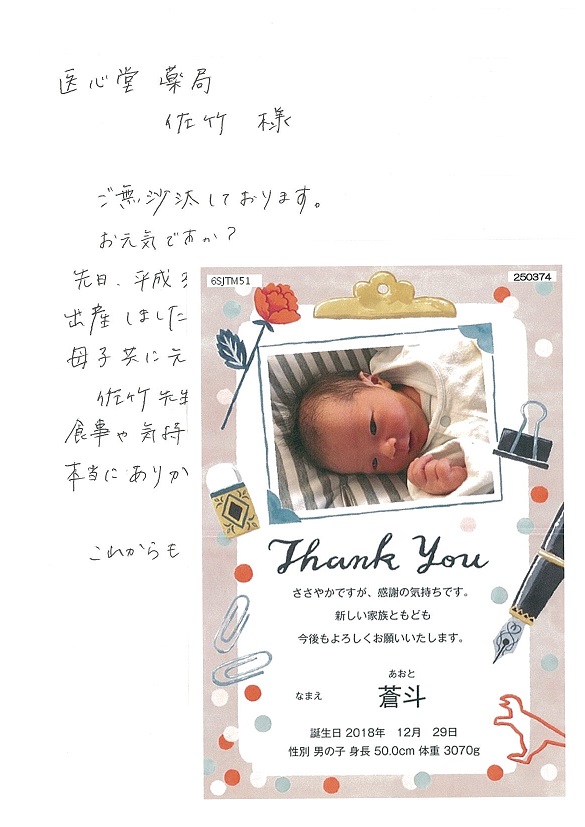 医心堂 薬局
佐竹 様
ご無沙汰しております。
お元気ですか？
先日、平成
出産しました
母子共に元
佐竹先生
食事や気持
本当にありが
これからも
6SJTM51
250374
Thank You
ささやかですが、感謝の気持ちです。
新しい家族ともども
今後もよろしくお願いいたします。
あおと
なまえ 蒼斗
誕生日 2018年 12月 29日
性別 男の子 身長 50.0cm 体重 3070g